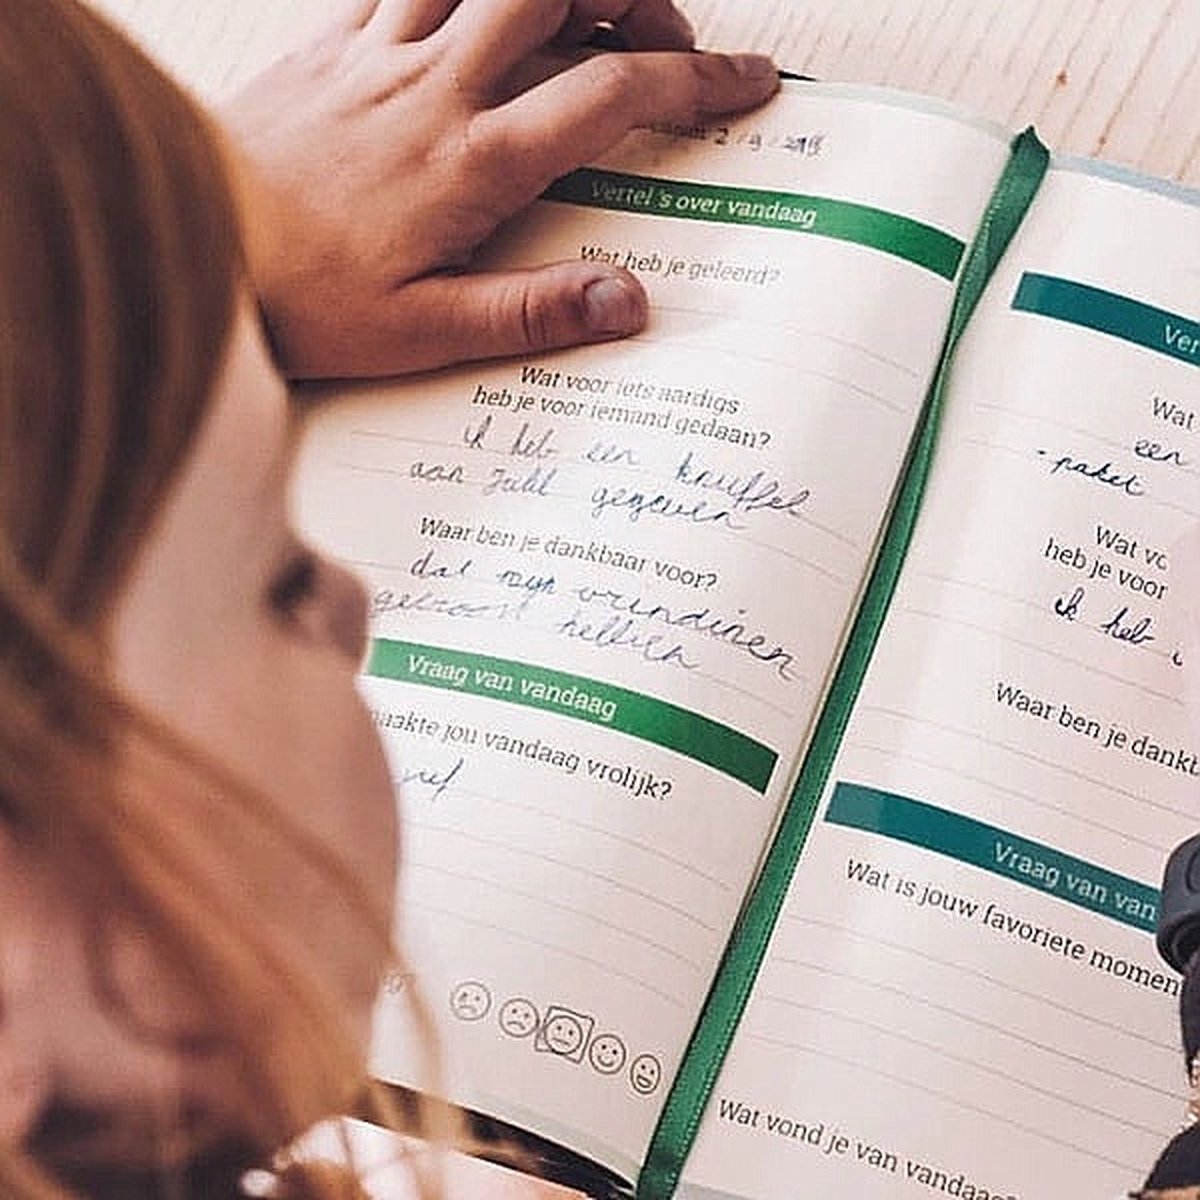 2 / 9 /
Vertel 's over vandaag
Wat heb je geleerd?
Wat voor iets aardigs
heb je voor iemand gedaan?
ik heb een knuffel
aan gegeven
Waar ben je dankbaar voor?
dat mijn vrindinen
hebben
Vraag van vandaag
aakte jou vandaag vrolijk?
Ver
Wat
een
- paket
Wat vo
heb je voor
ik heb
Waar ben je dankb
Vraag van van
Wat is jouw favoriete momen
Wat vond je van vandaa